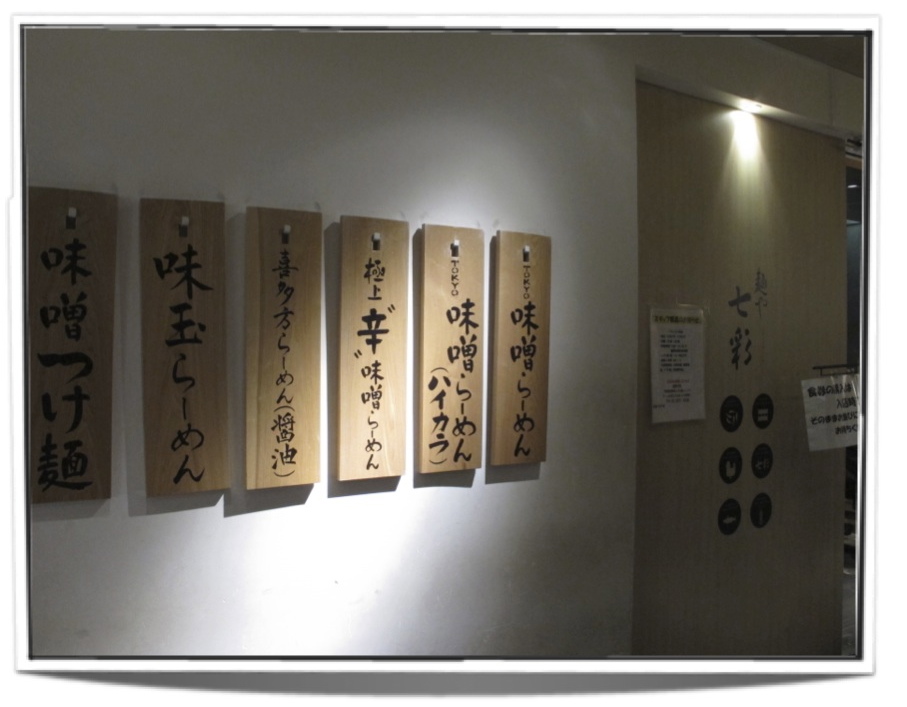 TOKYO 味噌らーめん
TOKYO 味噌らーめん
(ハイカラ)
極上辛゛味噌らーめん
喜多方らーめん(醤油)
味玉らーめん
味噌つけ麺
麺や
七彩